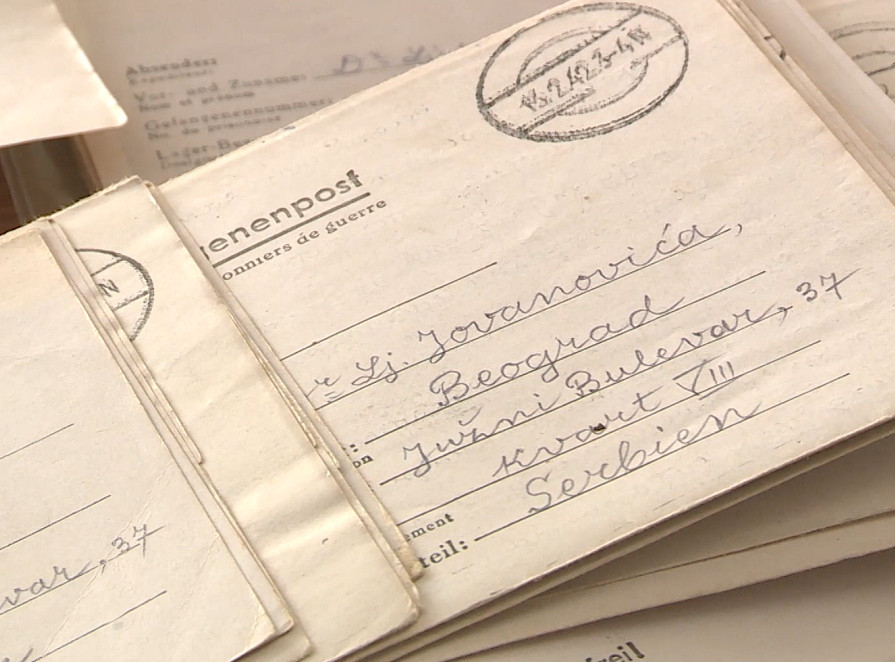 Absender:
Vor- und Zuname:
Nom et prénom
Gefangenennummer:
No. du prisonnier
Lager-Bez
enenpost
onniers de guerre
Lj. Jovanovića,
Beograd
Južni Bulevar, 37
on
Kvart VIII
ement
Serbien
teil:
var, 37
N